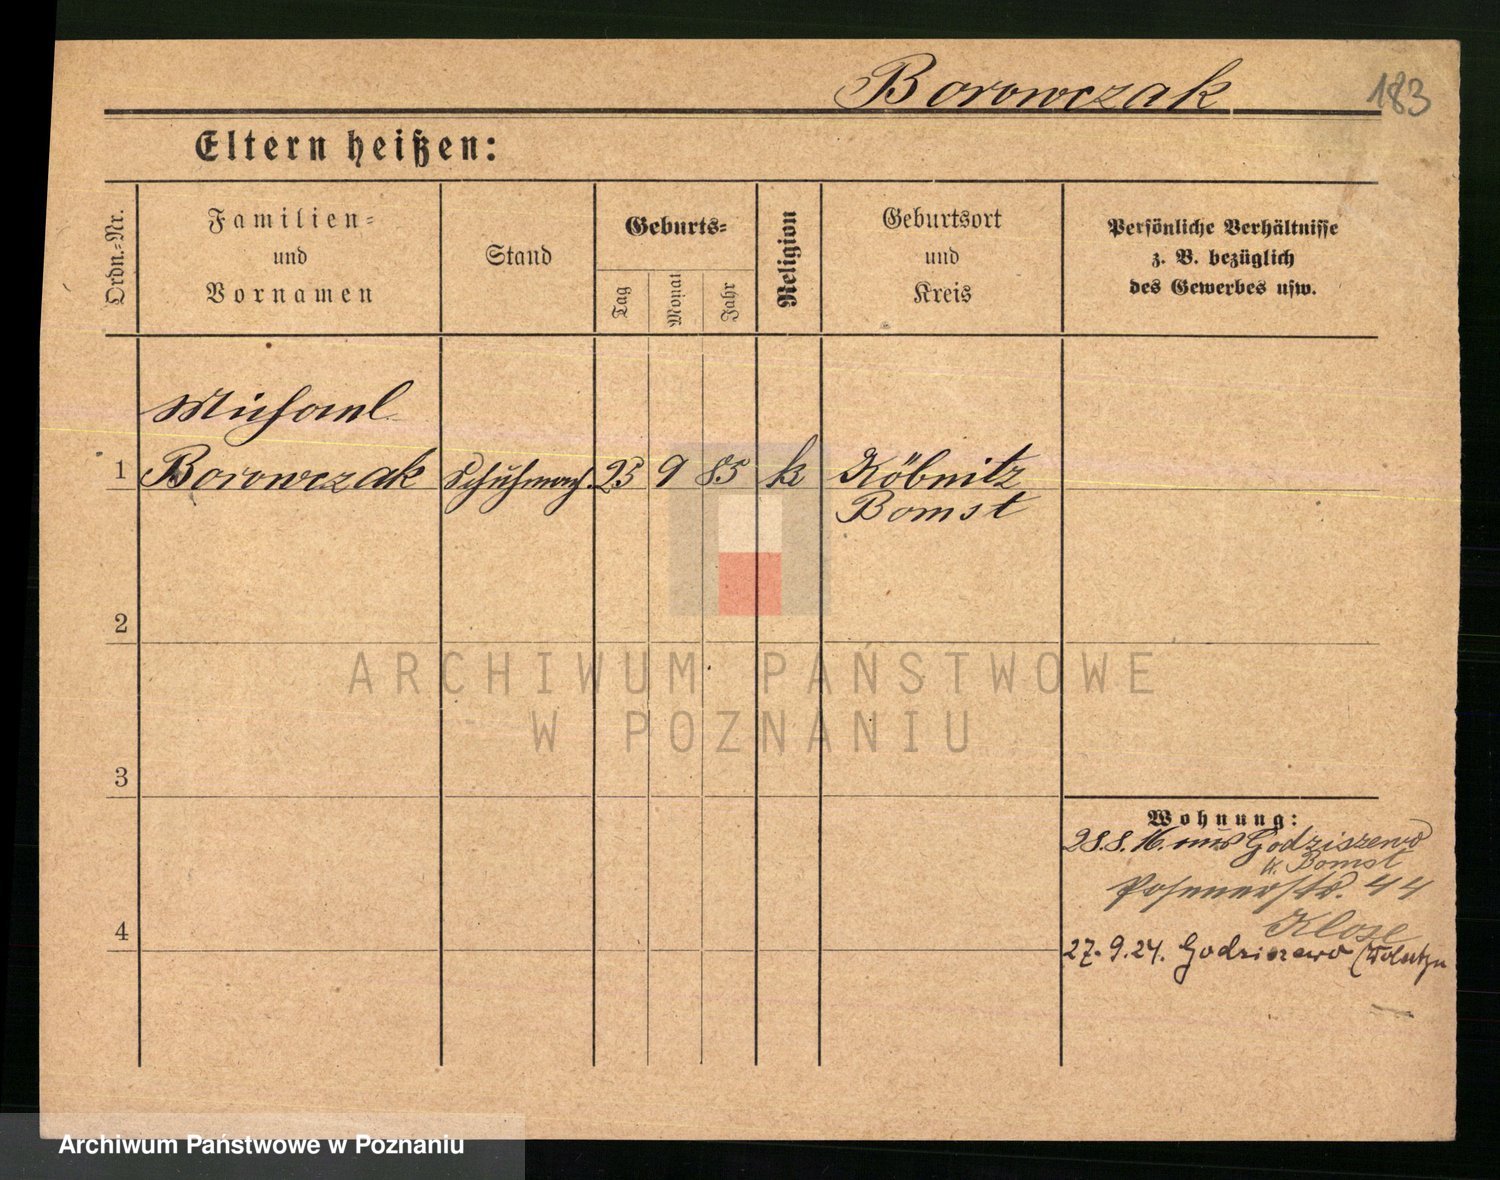 Borowczak 183
Eltern heißen:
Ordn.-Nr.
Familien-
und
Vornamen
Stand
Geburts-
Tag
Monat
Jahr
Religion
Geburtsort
und
Kreis
Persönliche Verhältnisse
z. B. bezüglich
des Gewerbes usw.
Michael
1 Borowczak Schuhmach. 25 9 85 k Köbnitz
Bomst
2
3
4
Wohnung:
28.8.16. aus Godziszewo
K. Bomst
Posenerstr. 44
Klose
27.9.24. Godziszewo
ARCHIWUM PAŃSTWOWE
W POZNANIU
Archiwum Państwowe w Poznaniu